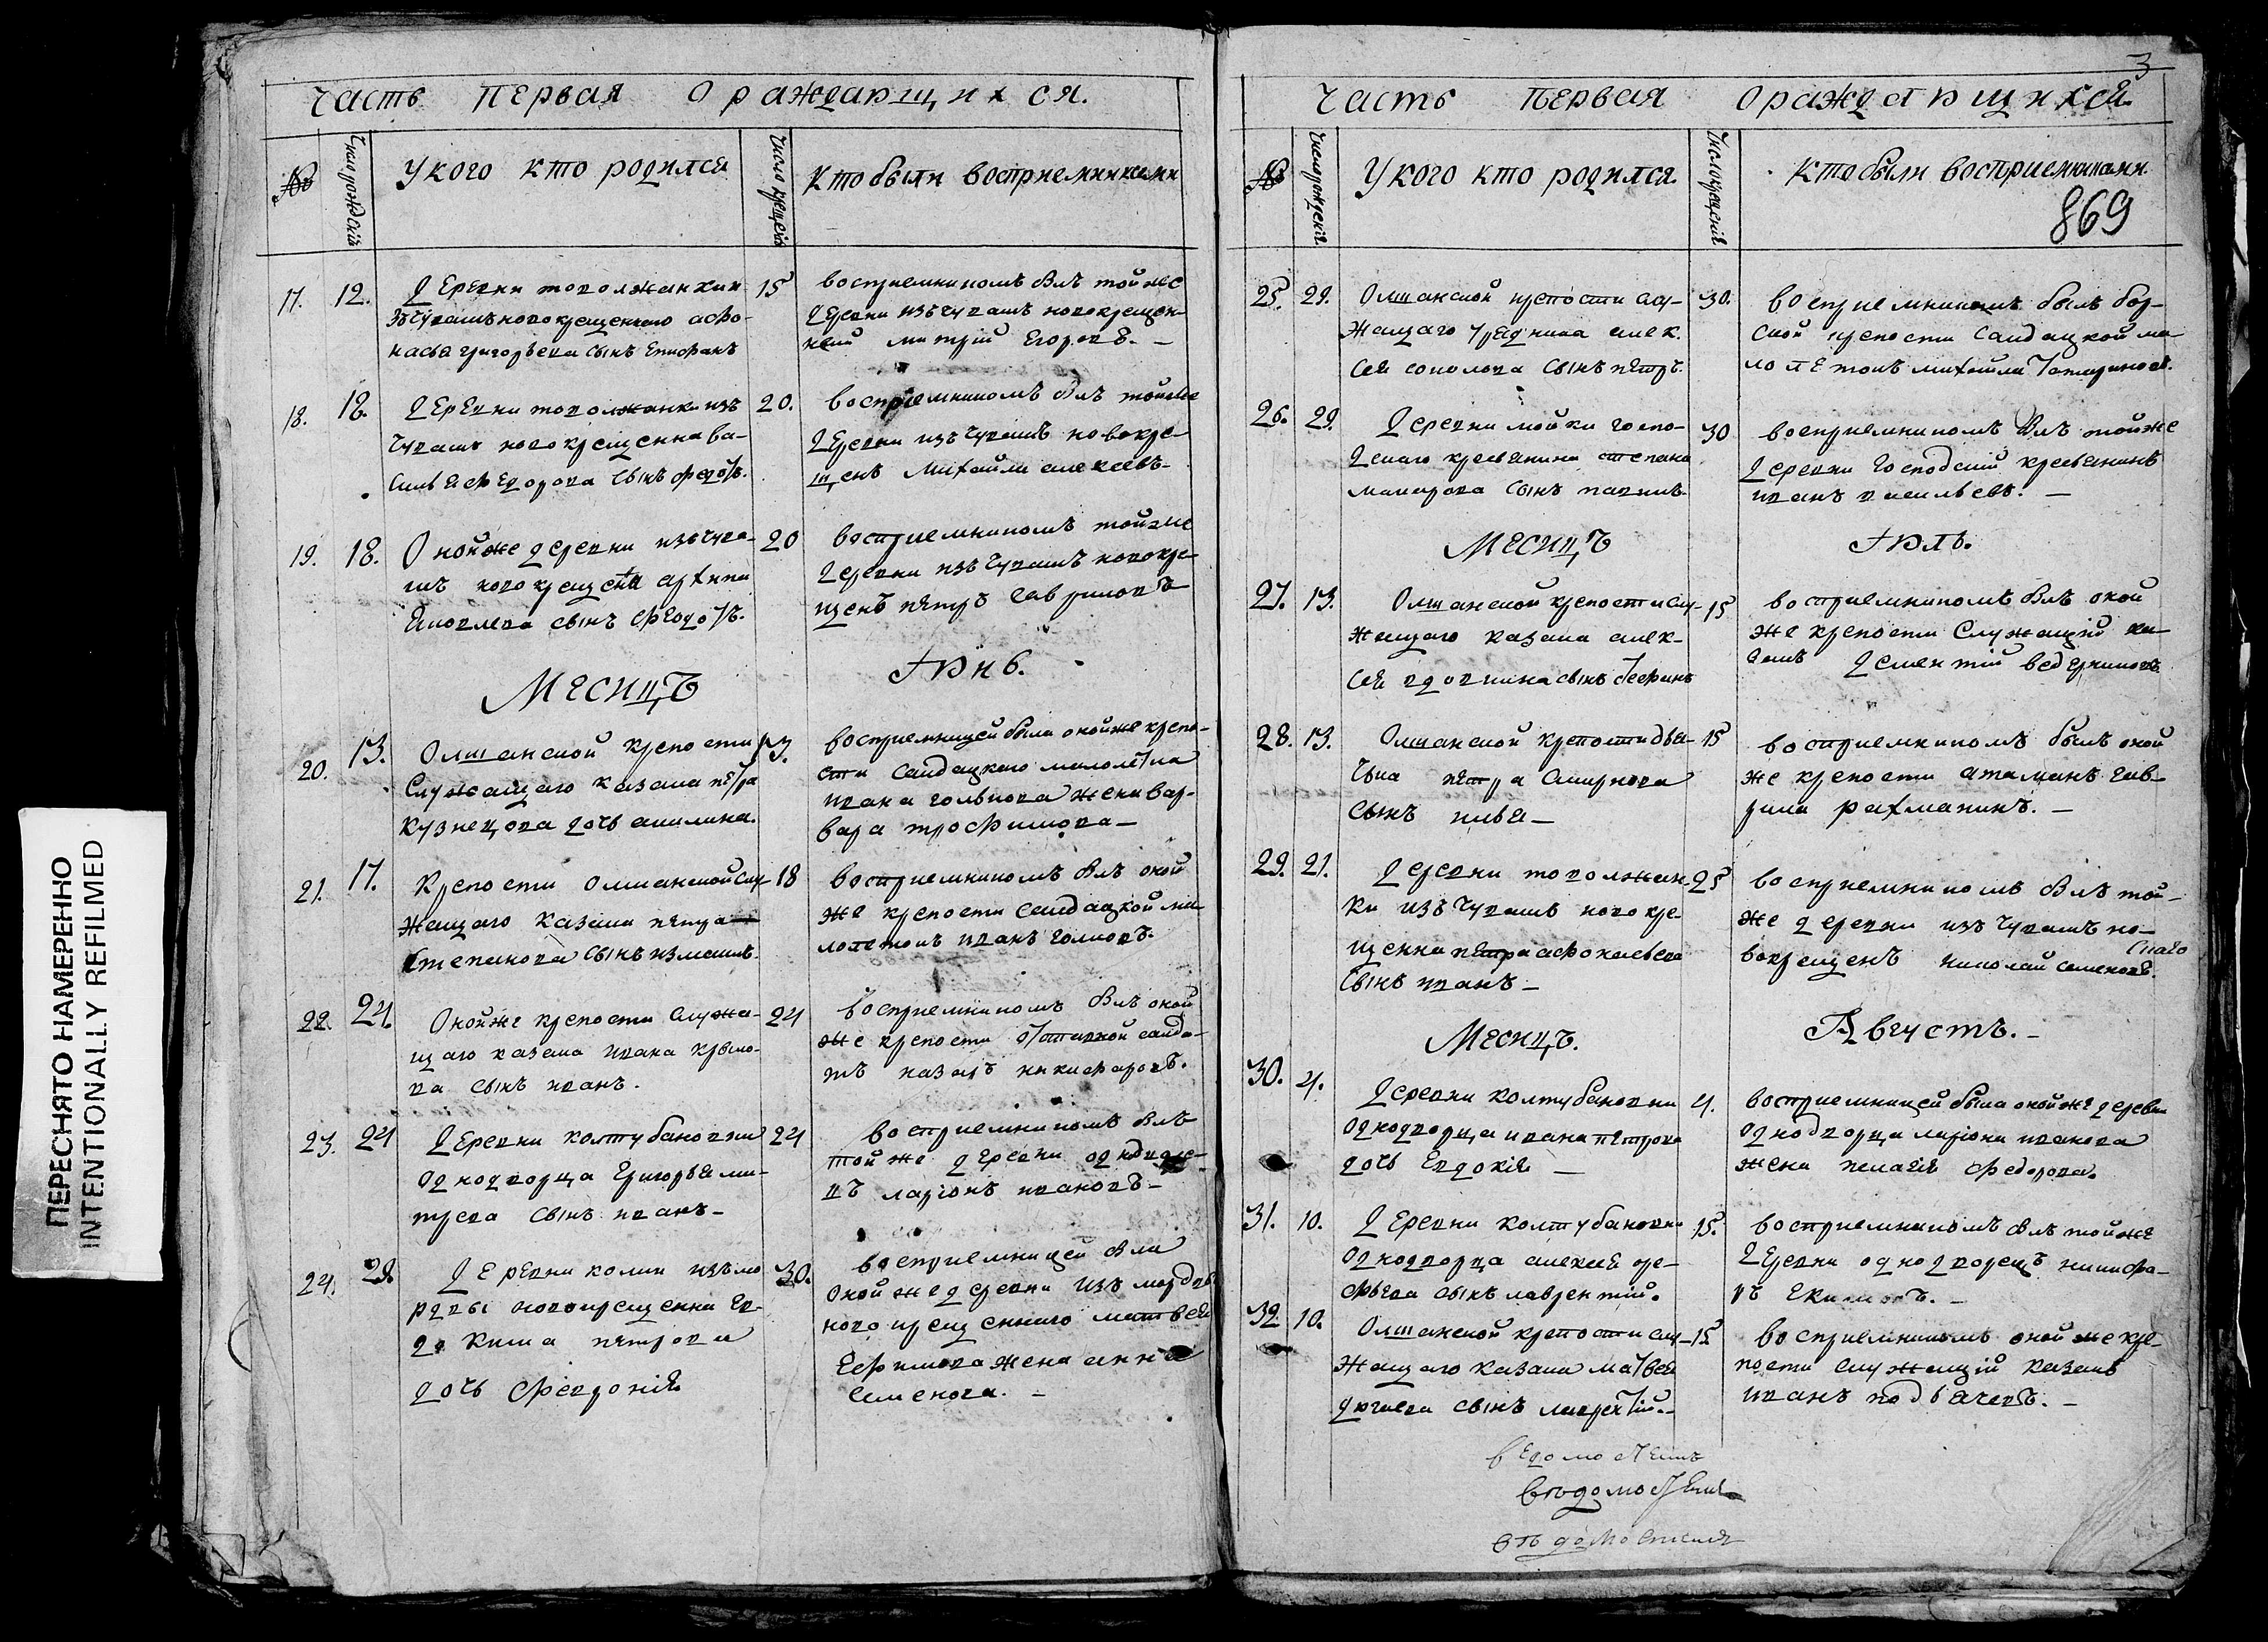 ПЕРЕСНЯТО НАМЕРЕННО
INTENTIONALLY REFILMED
Часть первая о раждающихся.
№
Число рождения
У кого кто родился
Число крещения
Кто были восприемниками
17.
12.
Деревни товолжанки
изъ чувашъ новокрещенного афо-
насья григорьева сынъ Епифанъ
15
восприемникомъ былъ тойже
деревни изъ чувашъ новокрещен-
ной митрий Егоровъ. —
18.
18.
Деревни товолжанки изъ
чувашъ новокрещенна ва-
силья федорова сынъ федотъ.
20.
восприемникомъ былъ тойже
деревни изъ чувашъ новокре-
щенъ михайла алексеевъ.
19.
18.
Онойже деревни изъ чува-
шъ новокрещена архипа
Яковлева сынъ феодотъ.
20
восприемникомъ тойже
деревни изъ чувашъ новокре-
щенъ петръ гавриловъ
Месицъ Iюнь.
20.
13.
Олшанской крепости
служащаго казака петра
кузнецова дочь акилина.
13.
восприемницей была онойже крепо-
сти салдацкаго малолетка
ивана голькова жена вар-
вара трофимова —
21.
17.
Крепости олшанской слу-
жащаго казака петра
степанова сынъ измаилъ.
18
восприемникомъ былъ оной
же крепости салдацкой ма-
лолетокъ иванъ голковъ.
22.
24.
Онойже крепости служа-
щаго казака ивана крыло-
ва сынъ иванъ.
24
восприемникомъ былъ оной
же крепости отставной салда-
тъ назаръ никифаровъ.
23.
24
Деревни колтубановки
однодворца григорья ми-
трева сынъ иванъ —
24
восприемникомъ былъ
тойже деревни однодворе-
цъ ларiонъ ивановъ —
24.
29.
Деревни колки изъ мо
рдвы новокрещенна ев-
докима петрова
дочь февронiя
30.
восприемницей была
онойже деревни изъ мордвы
новокрещенного матвея
Ефимова жена анна
семенова. —
3
Часть первая о раждающихся.
№
Число рождения
У кого кто родился.
Число крещения
Кто были восприемниками
869
25.
29.
Олшанской крепости слу-
жащаго урядника алек.
сея соколова сынъ петръ.
30.
восприемникомъ былъ бор-
ской крепости салдацкой ма-
ло летокъ михайла татариновъ.
26.
29.
Деревни мойки госпо-
дскаго кресьянина степана
макарова сынъ павилъ.
30
восприемникомъ былъ тойже
деревни господский кресьянинъ
иванъ васильевъ. —
Месицъ Iюль.
27.
13.
Олшанской крепости слу-
жащаго казака алек-
сея вдовкина сынъ стефанъ
15
восприемникомъ былъ оной
же крепости служащiй ка-
закъ дементий ведерниковъ
28.
13.
Олшанской крепости дья-
чка петра смирнова
сынъ илья —
15
восприемникомъ былъ оной
же крепости атаманъ гав-
рила рахманинъ. —
29.
21.
Деревни товолжан-
ки изъ чувашъ новокре-
щенна петра афонасьева
сынъ иванъ —
25
восприемникомъ былъ той-
же деревни изъ чувашъ но-
вокрещенъ николай семеновъ.
Месицъ. Августъ. —
30.
4.
Деревни колтубановки
однодворца ивана петрова
дочь Евдокiя —
4.
восприемницей была онойже деревни
однодворца ларiона иванова
жена пелагiя федорова.
31.
10.
Деревни колтубановки
однодворца алексея аре-
фьева сынъ лаврентий.
15.
восприемникомъ былъ тойже
деревни однодворецъ никифа-
ръ Екимовъ. —
32.
10.
Олшанской крепости слу-
жащаго казака матвея
дюгаева сынъ лаврентiй. —
15
восприемникомъ онойже кре-
пости служащiй казакъ
иванъ подьячевъ. —